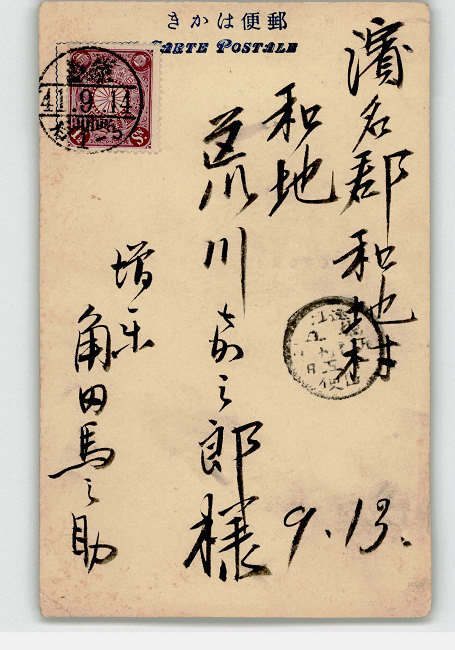 郵便はかき
CARTE POSTALE
濱名郡和地村
和地
荒川嘉之郎様
増楽
角田馬之助
9.13.
41.9.14